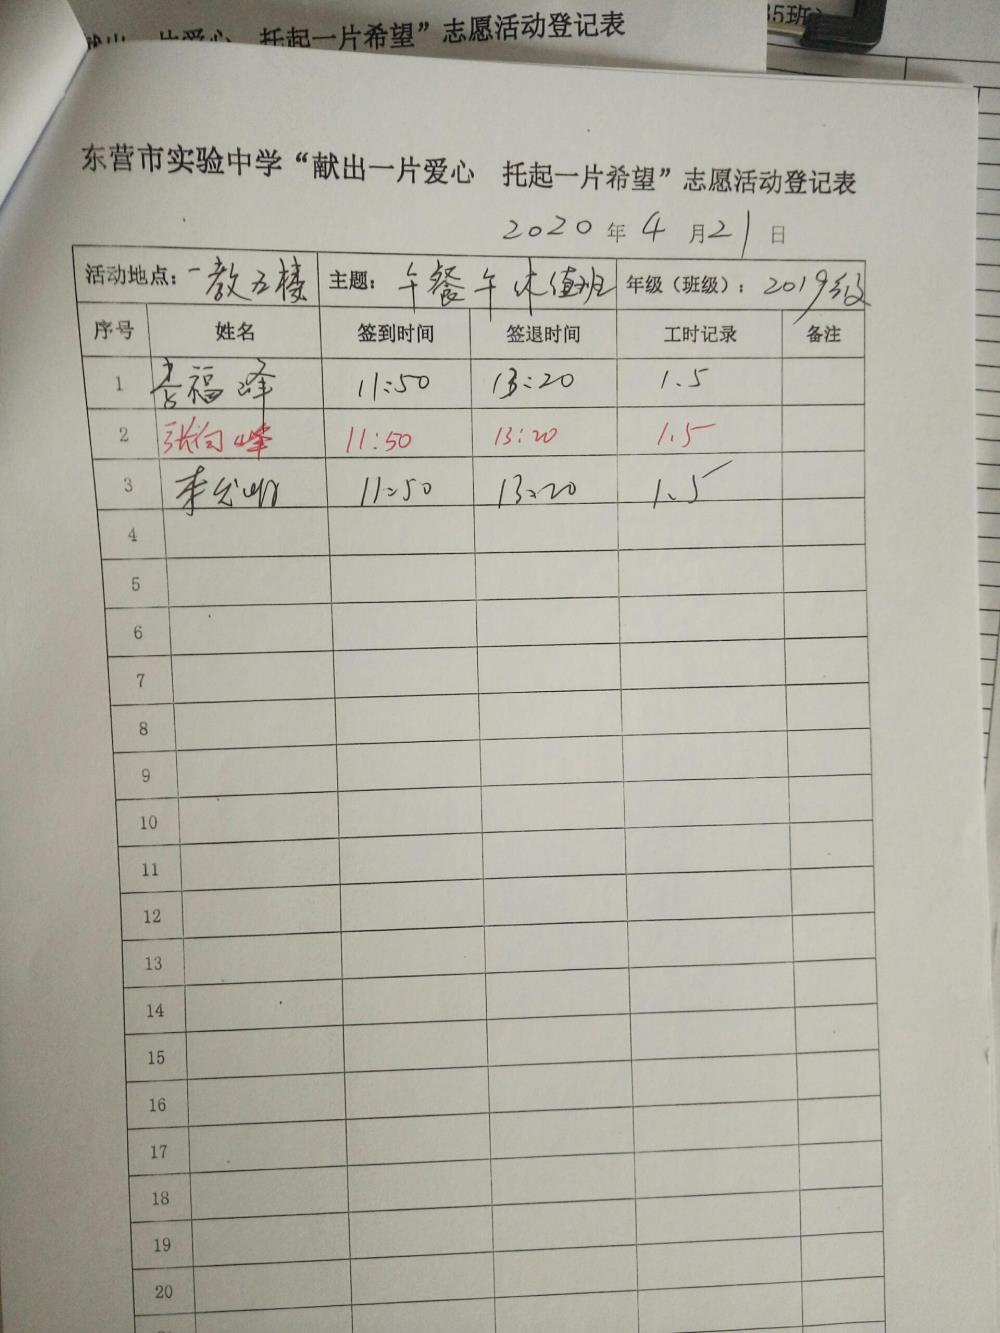 片爱心 托起一片希望”志愿活动登记表
35班）
东营市实验中学“献出一片爱心 托起一片希望”志愿活动登记表
2020年4月21日
活动地点：一教五楼 主题：午餐午休值班 年级（班级）：2019级
序号 姓名 签到时间 签退时间 工时记录 备注
1 李福峰 11:50 13:20 1.5
2 11:50 13:20 1.5
3 11:50 13:20 1.5
4
5
6
7
8
9
10
11
12
13
14
15
16
17
18
19
20